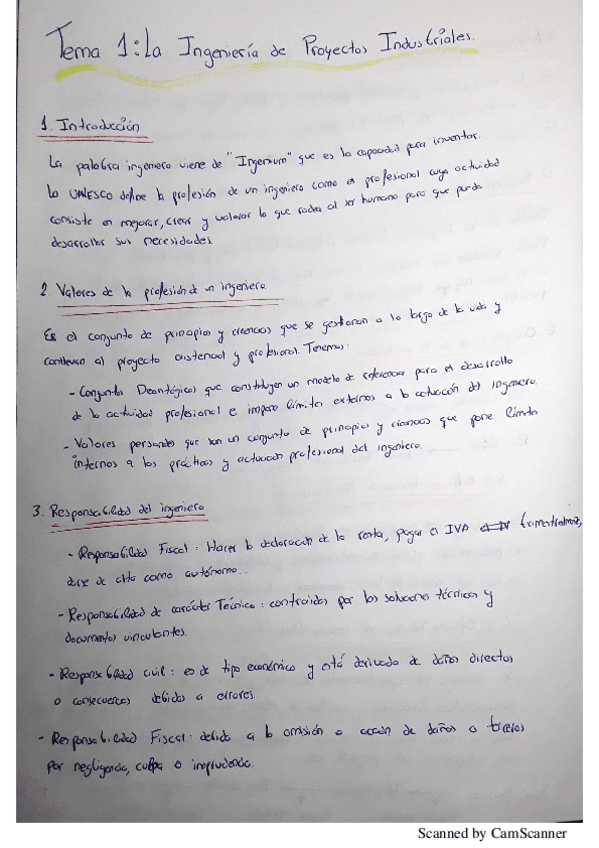 Tema 1: La Ingeniería de Proyectos Industriales.
1. Introducción
La palabra ingeniero viene de "Ingenium" que es la capacidad para inventar.
La UNESCO define la profesión de un ingeniero como el profesional cuya actividad
consiste en mejorar, crear y valorar lo que rodea al ser humano para que pueda
desarrollar sus necesidades.
2. Valores de la profesión de un ingeniero.
Es el conjunto de principios y creencias que se gestionan a lo largo de la vida y
conllevan al proyecto existencial y profesional. Tenemos:
- Conjuntos Deontógicos que constituyen un modelo de referencia para el desarrollo
de la actividad profesional e impone límites externos a la actuación del ingeniero.
- Valores personales que son un conjunto de principios y creencias que pone límites
internos a las prácticas y actuación profesional del ingeniero.
3. Responsabilidad del ingeniero
- Responsabilidad Fiscal: Hacer la declaración de la renta, pagar el IVA trimestralmente,
darse de alta como autónomo...
- Responsabilidad de carácter Técnico: contraidas por las soluciones técnicas y
documentos vinculantes.
- Responsabilidad civil: es de tipo económico y está derivada de daños directos
o consecuencias debidos a errores.
- Responsabilidad Fiscal: debido a la omisión o acción de daños a terceros
por negligencia, culpa o imprudencia.
Scanned by CamScanner